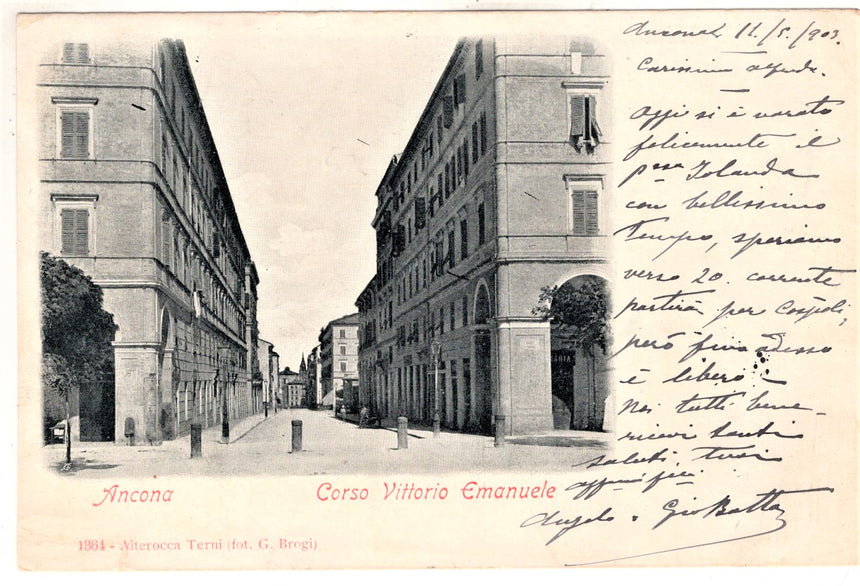 Ancona 11/5/903.
Carissimo
Oggi si è varato
felicemente il
Jolanda
con bellissimo
tempo, speriamo
verso 20. corrente
partirà per
però fino adesso
è libero -
Noi tutti bene -
ricevi tanti
saluti tuoi
Angelo e Gio Batta
Ancona
Corso Vittorio Emanuele
1364 - Alterocca Terni (fot. G. Brogi)